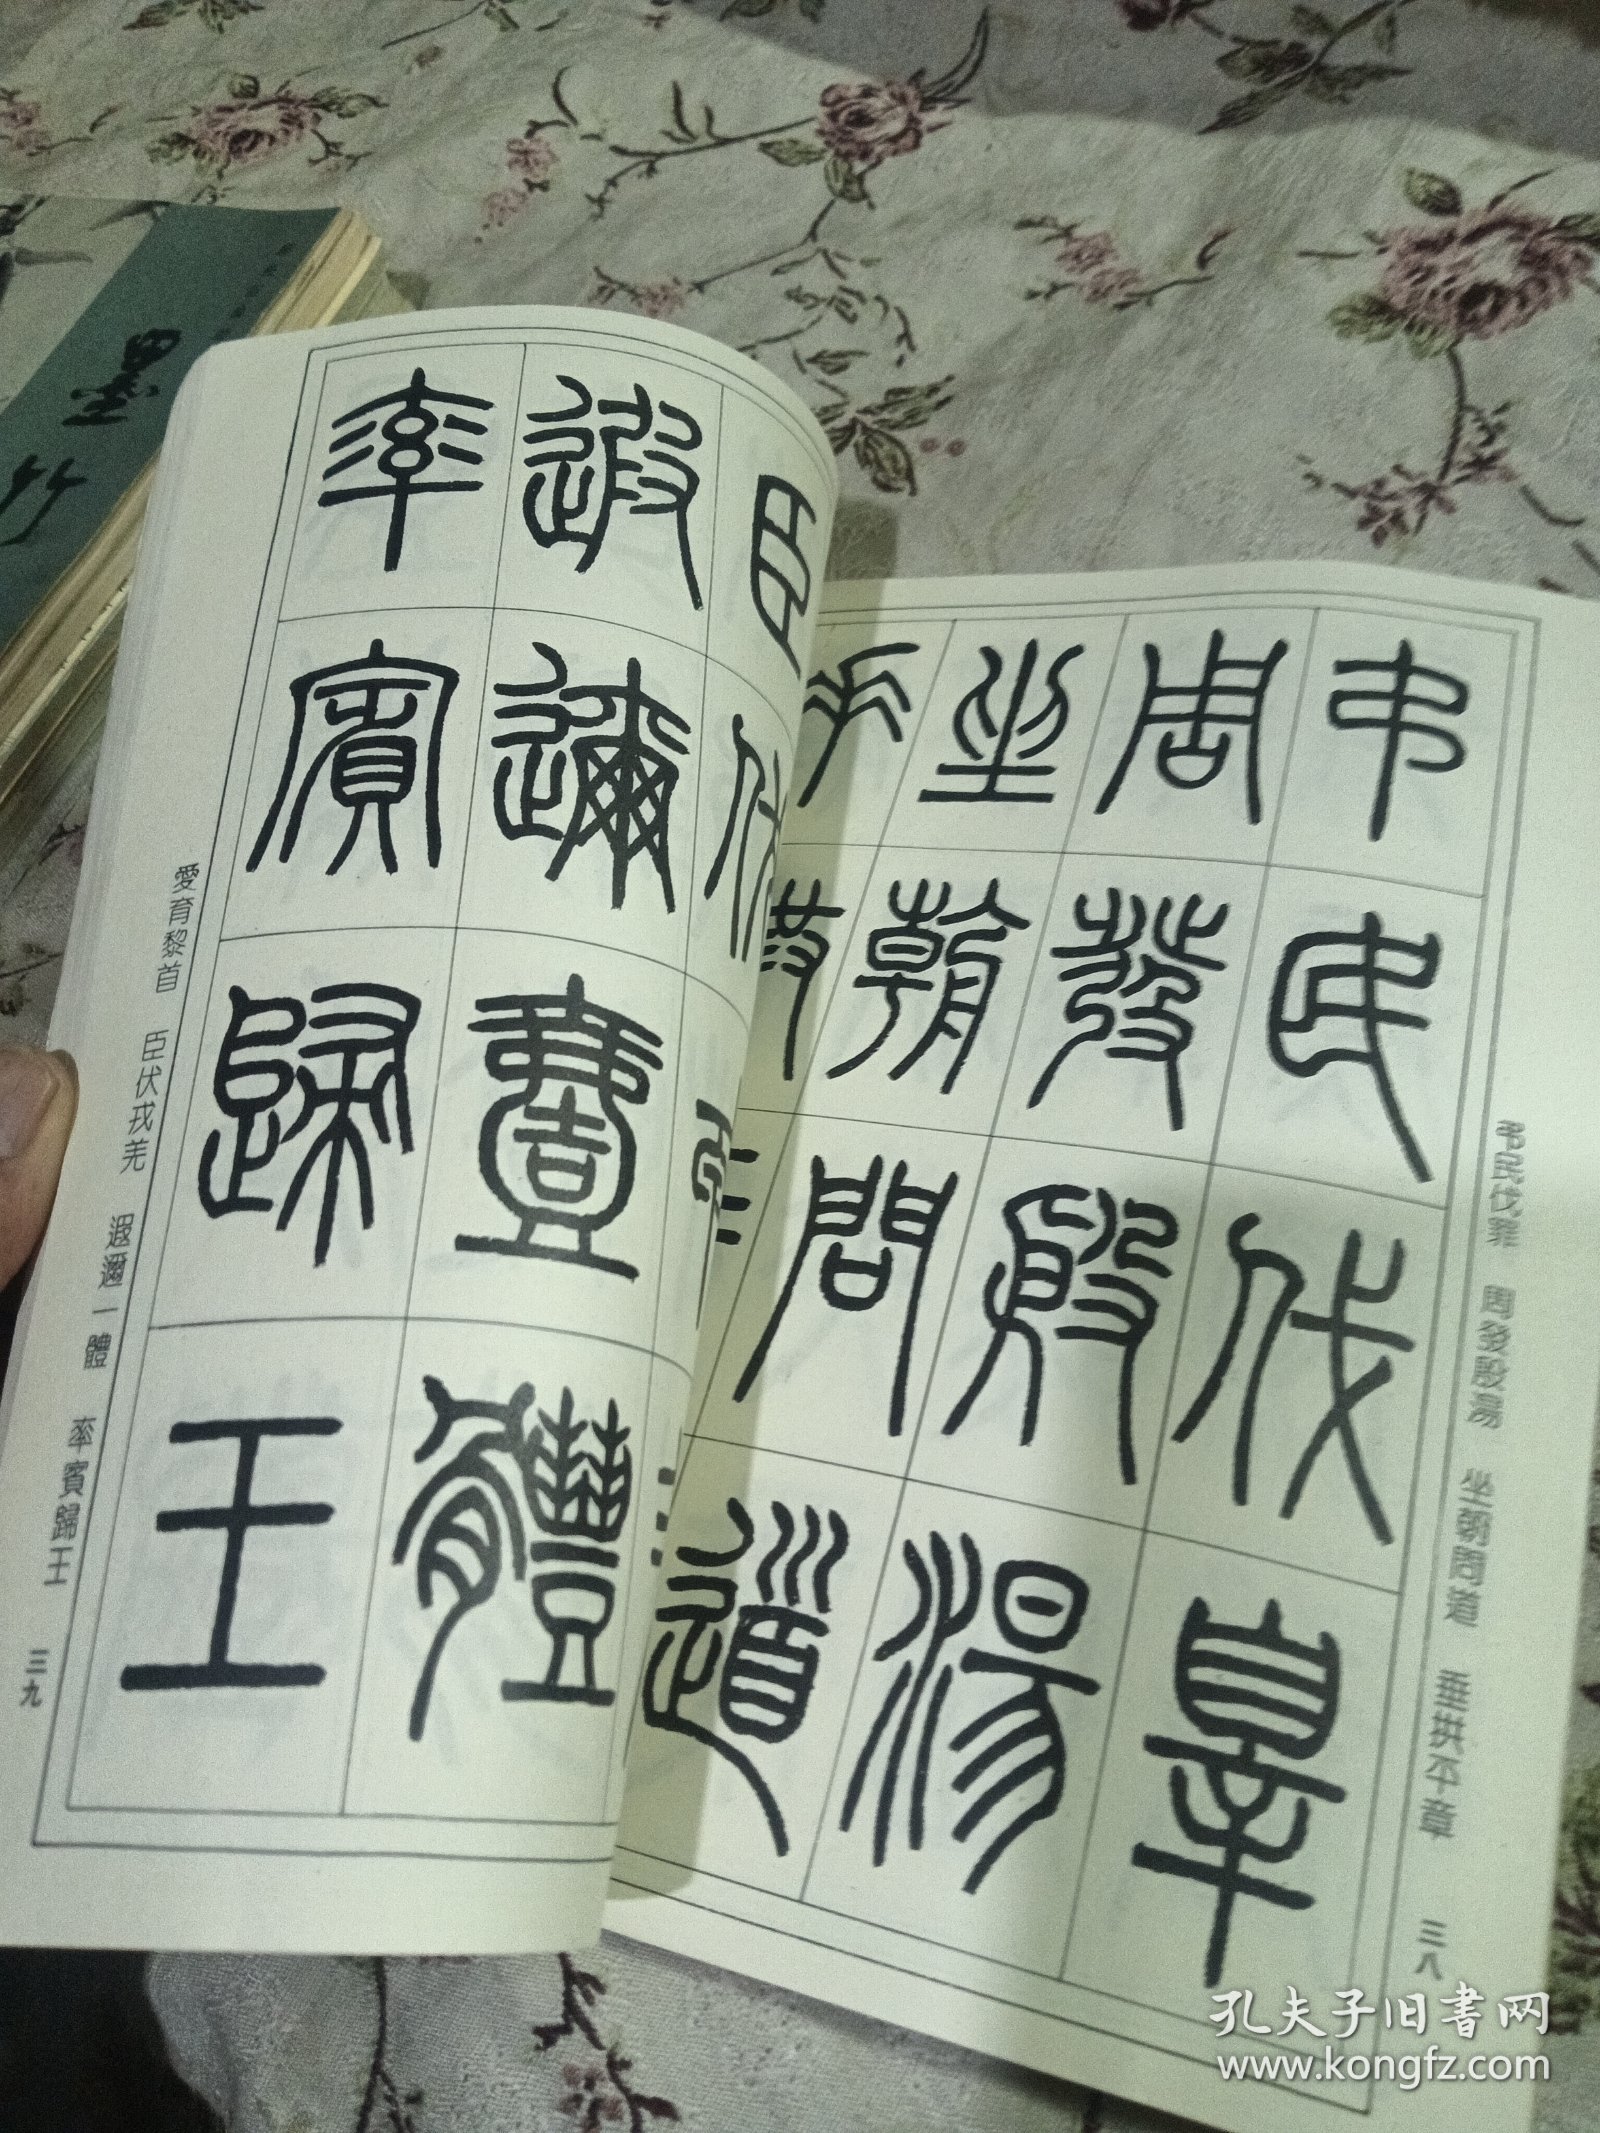 弔民伐辠
周發殷湯
坐朝問道
垂拱平章
弔民伐罪 周發殷湯 坐朝問道 垂拱平章
三八
臣伏
遐邇壹體
率賓歸王
愛育黎首 臣伏戎羌 遐邇一體 率賓歸王
三九
墨竹
孔夫子旧书网
www.kongfz.com